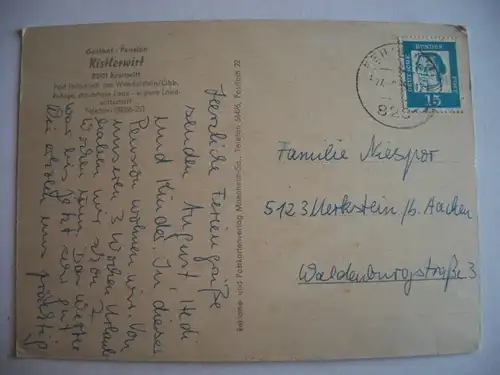 Gasthof - Pension
Kistlerwirt
Post
Telefon
Herzliche Feriengrüße
senden August, Hedi
und Kinder. In dieser
Pension wohnen wir. Von
unseren 3 Wochen Urlaub
haben wir schon 2
Wochen rum. Das Wetter
war bis jetzt sehr gut.
Wir erholen uns prächtig
Reklame- und Postkartenverlag
DEUTSCHE BUNDESPOST
15
Familie Niespor
5123 Merkstein / b. Aachen
Waldenburgstraße 3